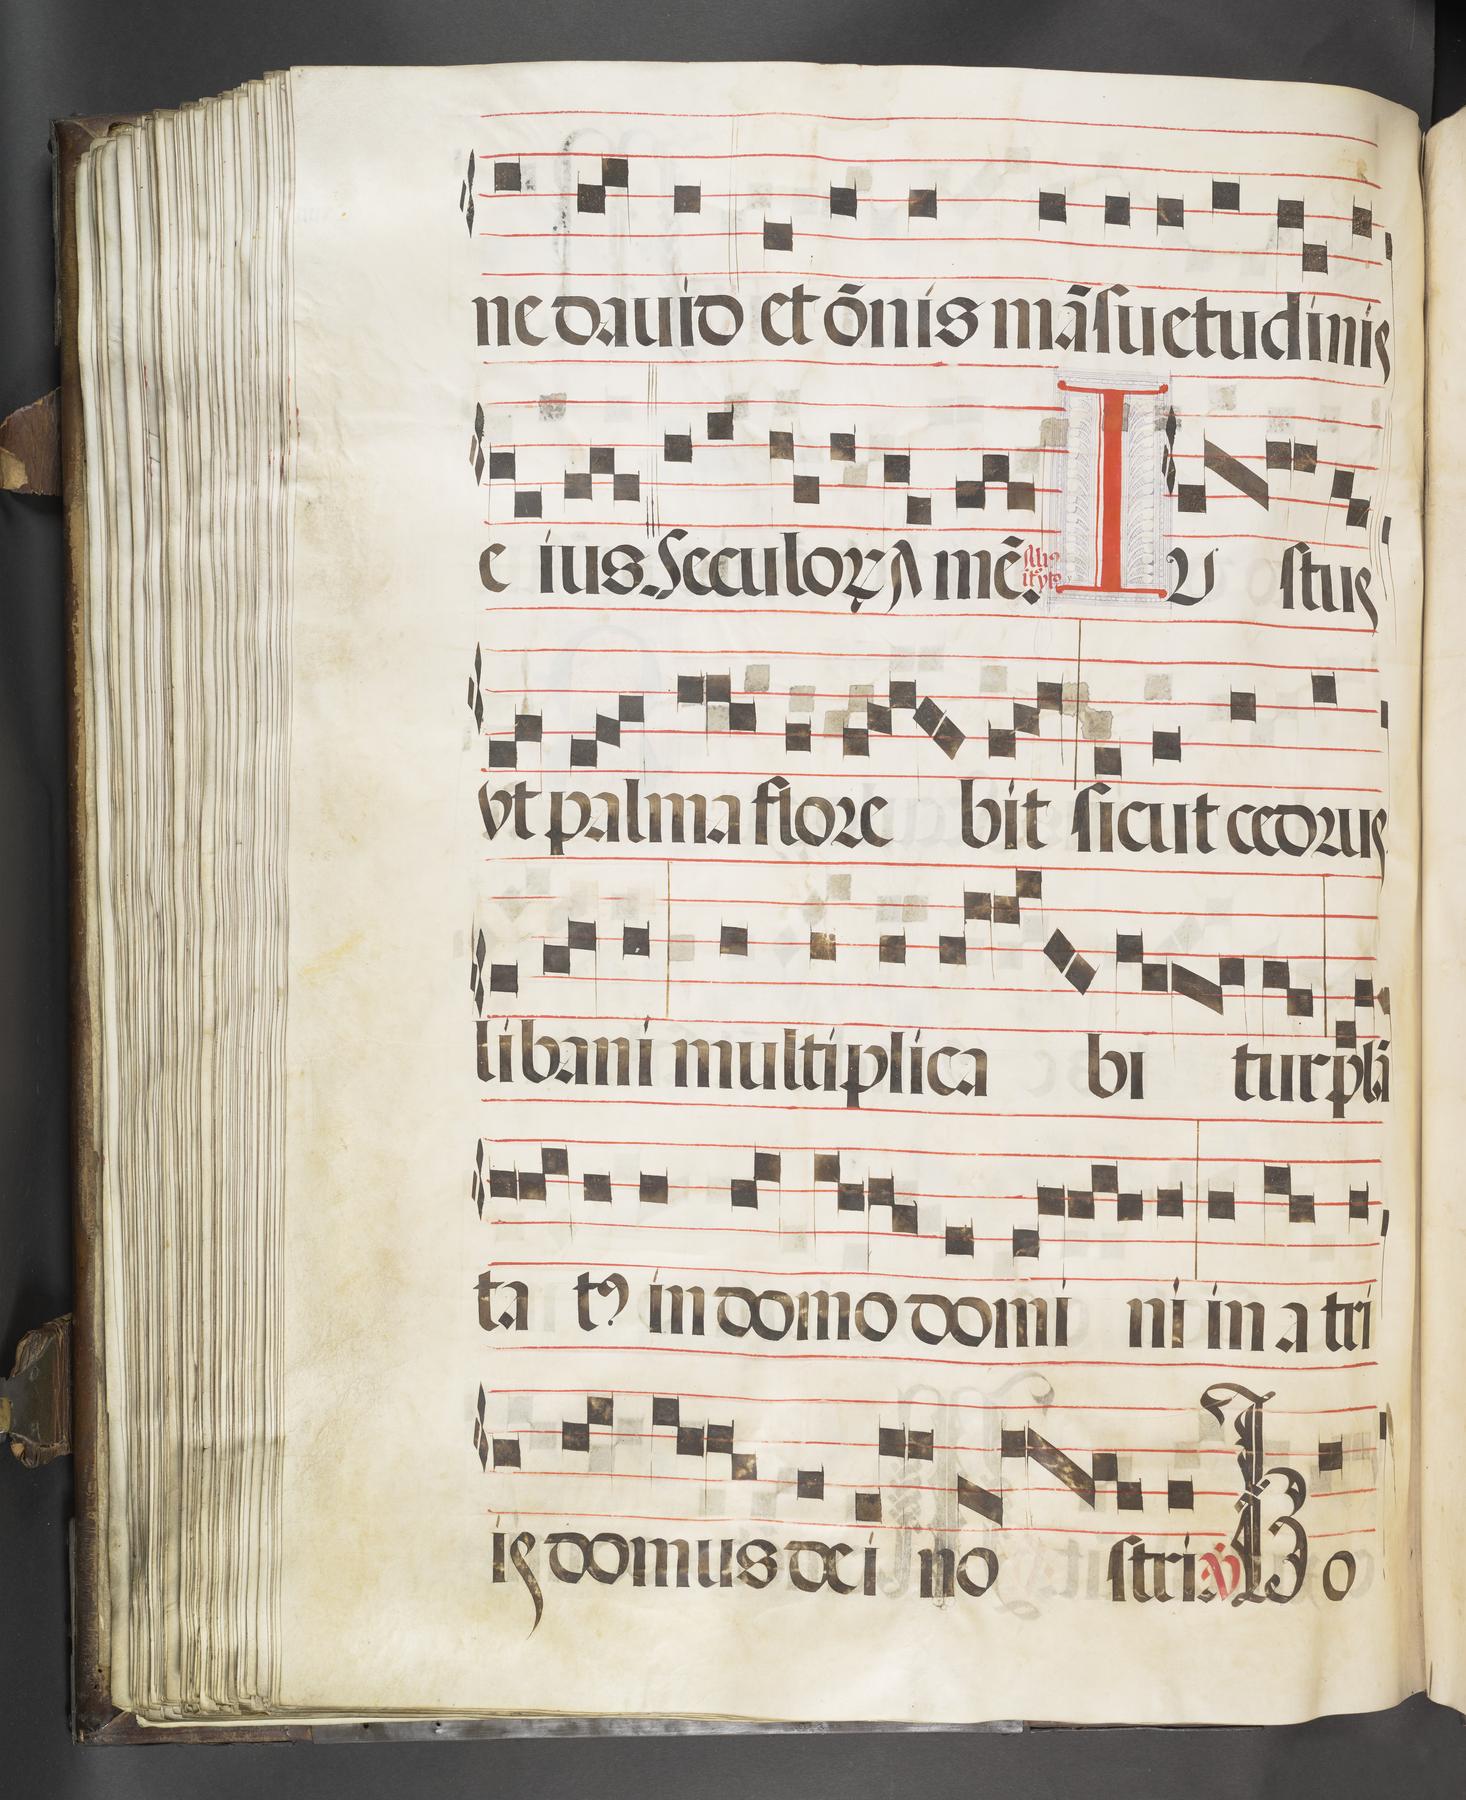 ne dauid et õnis mãsuetudinis
e ius. Seculoꝝ Amẽ. IU stus
vt palma flore bit sicut cedrus
libani multiplica bi tur plã
ta tꝰ in domo domi ni in a tri
is domus dei no stri ꝟ Bo